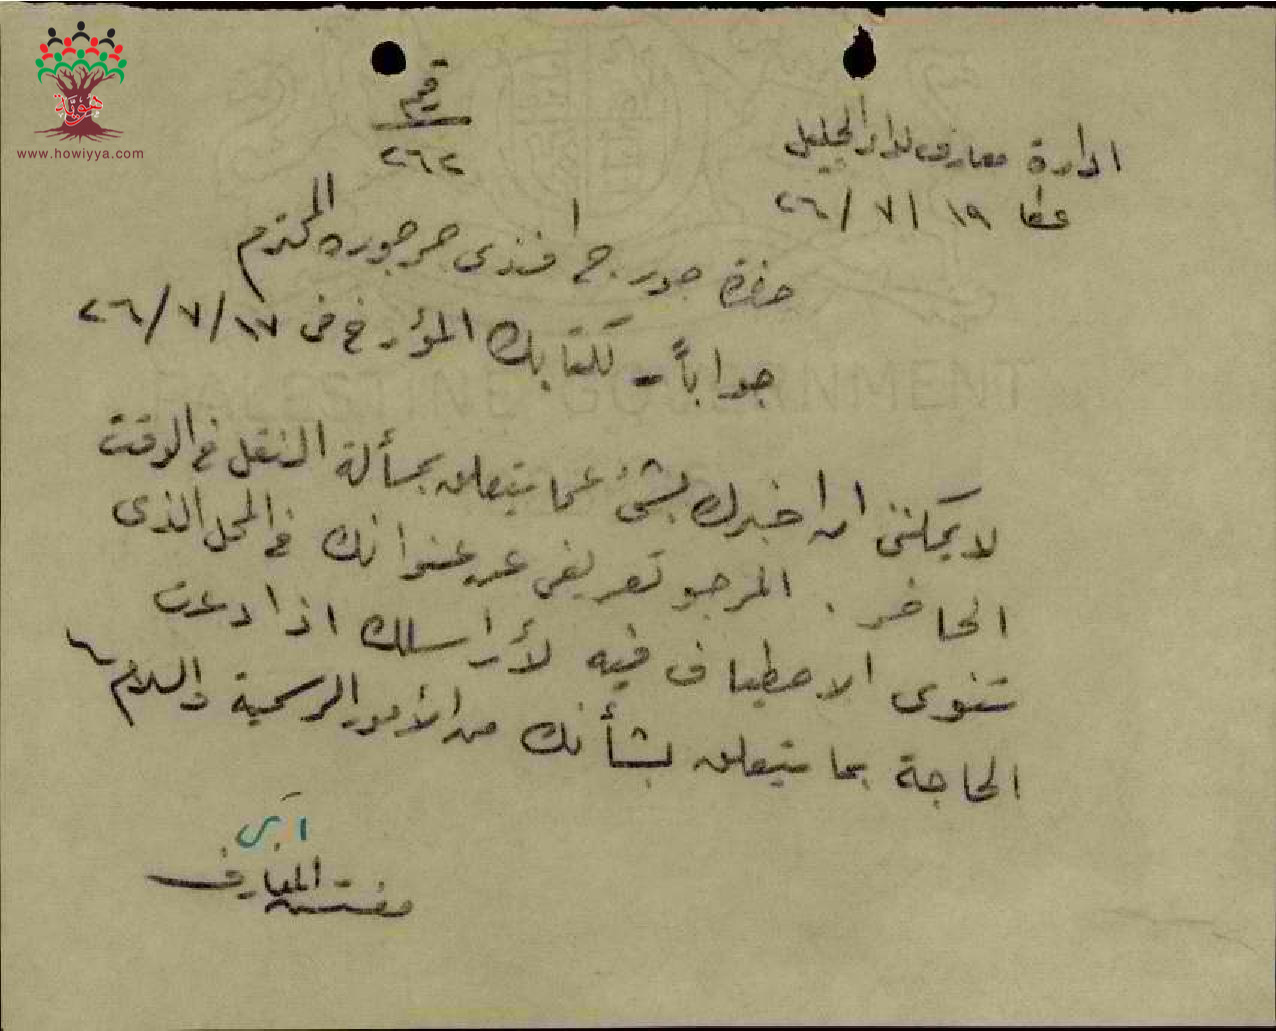 هوية
www.howiyya.com
رقم
٢٦٢
ادارة معارف لواء الجليل
عكا ١٩ /٧/ ٢٦
حضرة جورج افندي خرجوره المحترم
جواباً - لكتابك المؤرخ في ١٧/ ٧/ ٢٦
لا يمكنني ان اخبرك بشئ عما يتعلق بمسألة النقل في الوقت
الحاضر . المرجو تعريفي عن عنوانك في المحل الذي
تنوى الاصطياف فيه لأراسلك اذا دعت
الحاجة بما يتعلق بشأنك من الأمور الرسمية والسلام
مفتش المعارف
PALESTINE GOVERNMENT